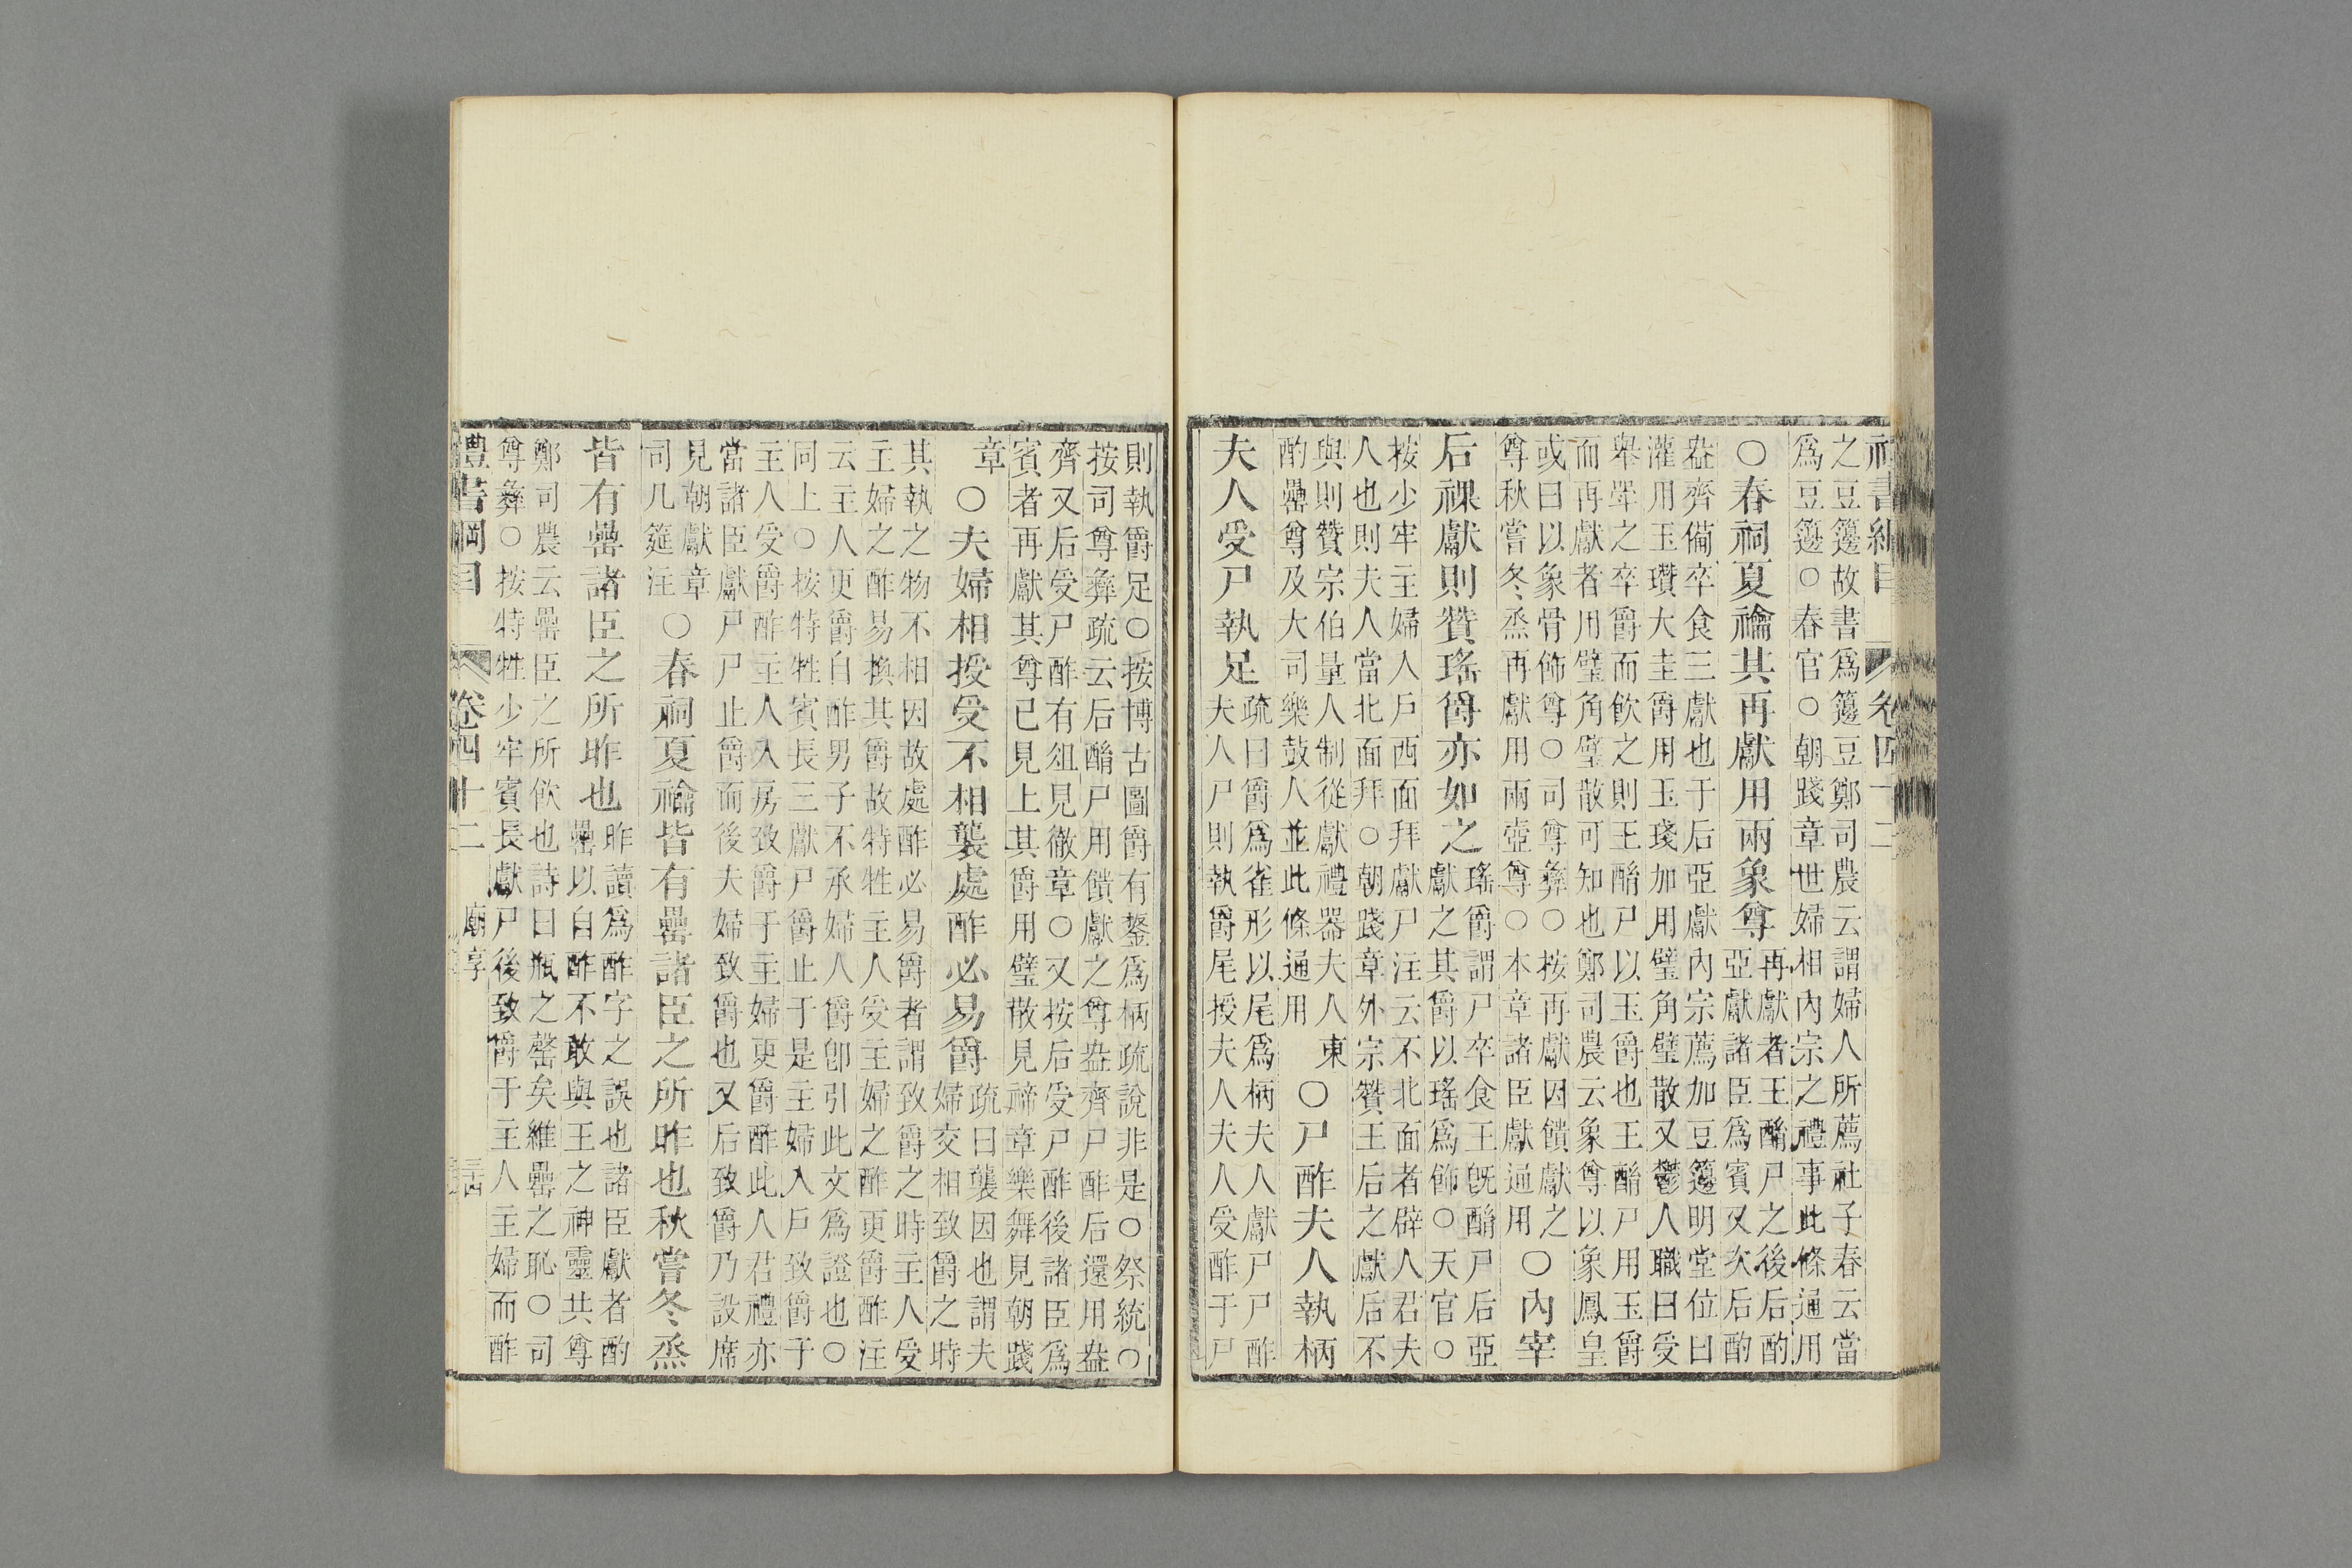 禮書綱目 卷四十二
之豆籩故書爲籩豆鄭司農云謂婦人所薦杜子春云當
爲豆籩○春官○朝踐章世婦相內宗之禮事此條通用
○春祠夏禴其再獻用兩象尊
再獻者王酳尸之後后酌
亞獻諸臣爲賓又次后酌
盎齊備卒食三獻也于后亞獻內宗薦加豆籩明堂位曰
灌用玉瓚大圭爵用玉琖加用璧角璧散又鬱人職曰受
舉斝之卒爵而飲之則王酳尸以玉爵也王酳尸用玉爵
而再獻者用璧角璧散可知也鄭司農云象尊以象鳳皇
或曰以象骨飾尊○司尊彝○按再獻因饋獻之
尊秋嘗冬烝再獻用兩壺尊○本章諸臣獻通用
○內宰
后祼獻則贊瑤爵亦如之
瑤爵謂尸卒食王旣酳尸后亞
獻之其爵以瑤爲飾○天官○
按少牢主婦入戶西面拜獻尸注云不北面者辟人君夫
人也則夫人當北面拜○朝踐章外宗贊王后之獻后不
與則贊宗伯量人制從獻禮器夫人東
酌罍尊及大司樂鼓人並此條通用
○尸酢夫人執柄
夫人受尸執足
疏曰爵爲雀形以尾爲柄夫人獻尸尸酢
夫人尸則執爵尾授夫人夫人受酢于尸
則執爵足○按博古圖爵有鋬爲柄疏說非是○祭統○
按司尊彝疏云后酳尸用饋獻之尊盎齊尸酢后還用盎
齊又后受尸酢有俎見徹章○又按后受尸酢後諸臣爲
賓者再獻其尊已見上其爵用璧散見禘章樂舞見朝踐
章
○夫婦相授受不相襲處酢必易爵
疏曰襲因也謂夫
婦交相致爵之時
其執之物不相因故處酢必易爵者謂致爵之時主人受
主婦之酢易換其爵故特牲主人受主婦之酢更爵酢注
云主人更爵自酢男子不承婦人爵卽引此文爲證也○
同上○按特牲賓長三獻尸爵止于是主婦入戶致爵于
主人受爵酢主人入房致爵于主婦更爵酢此人君禮亦
當諸臣獻尸尸止爵而後夫婦致爵也又后致爵乃設席
見朝獻章
司几筵注
○春祠夏禴皆有罍諸臣之所昨也秋嘗冬烝
皆有罍諸臣之所昨也
昨讀爲酢字之誤也諸臣獻者酌
罍以自酢不敢與王之神靈共尊
鄭司農云罍臣之所飮也詩曰瓶之罄矣維罍之恥○司
尊彝○按特牲少牢賓長獻尸後致爵于主人主婦而酢
禮書綱目 卷四十二 廟享